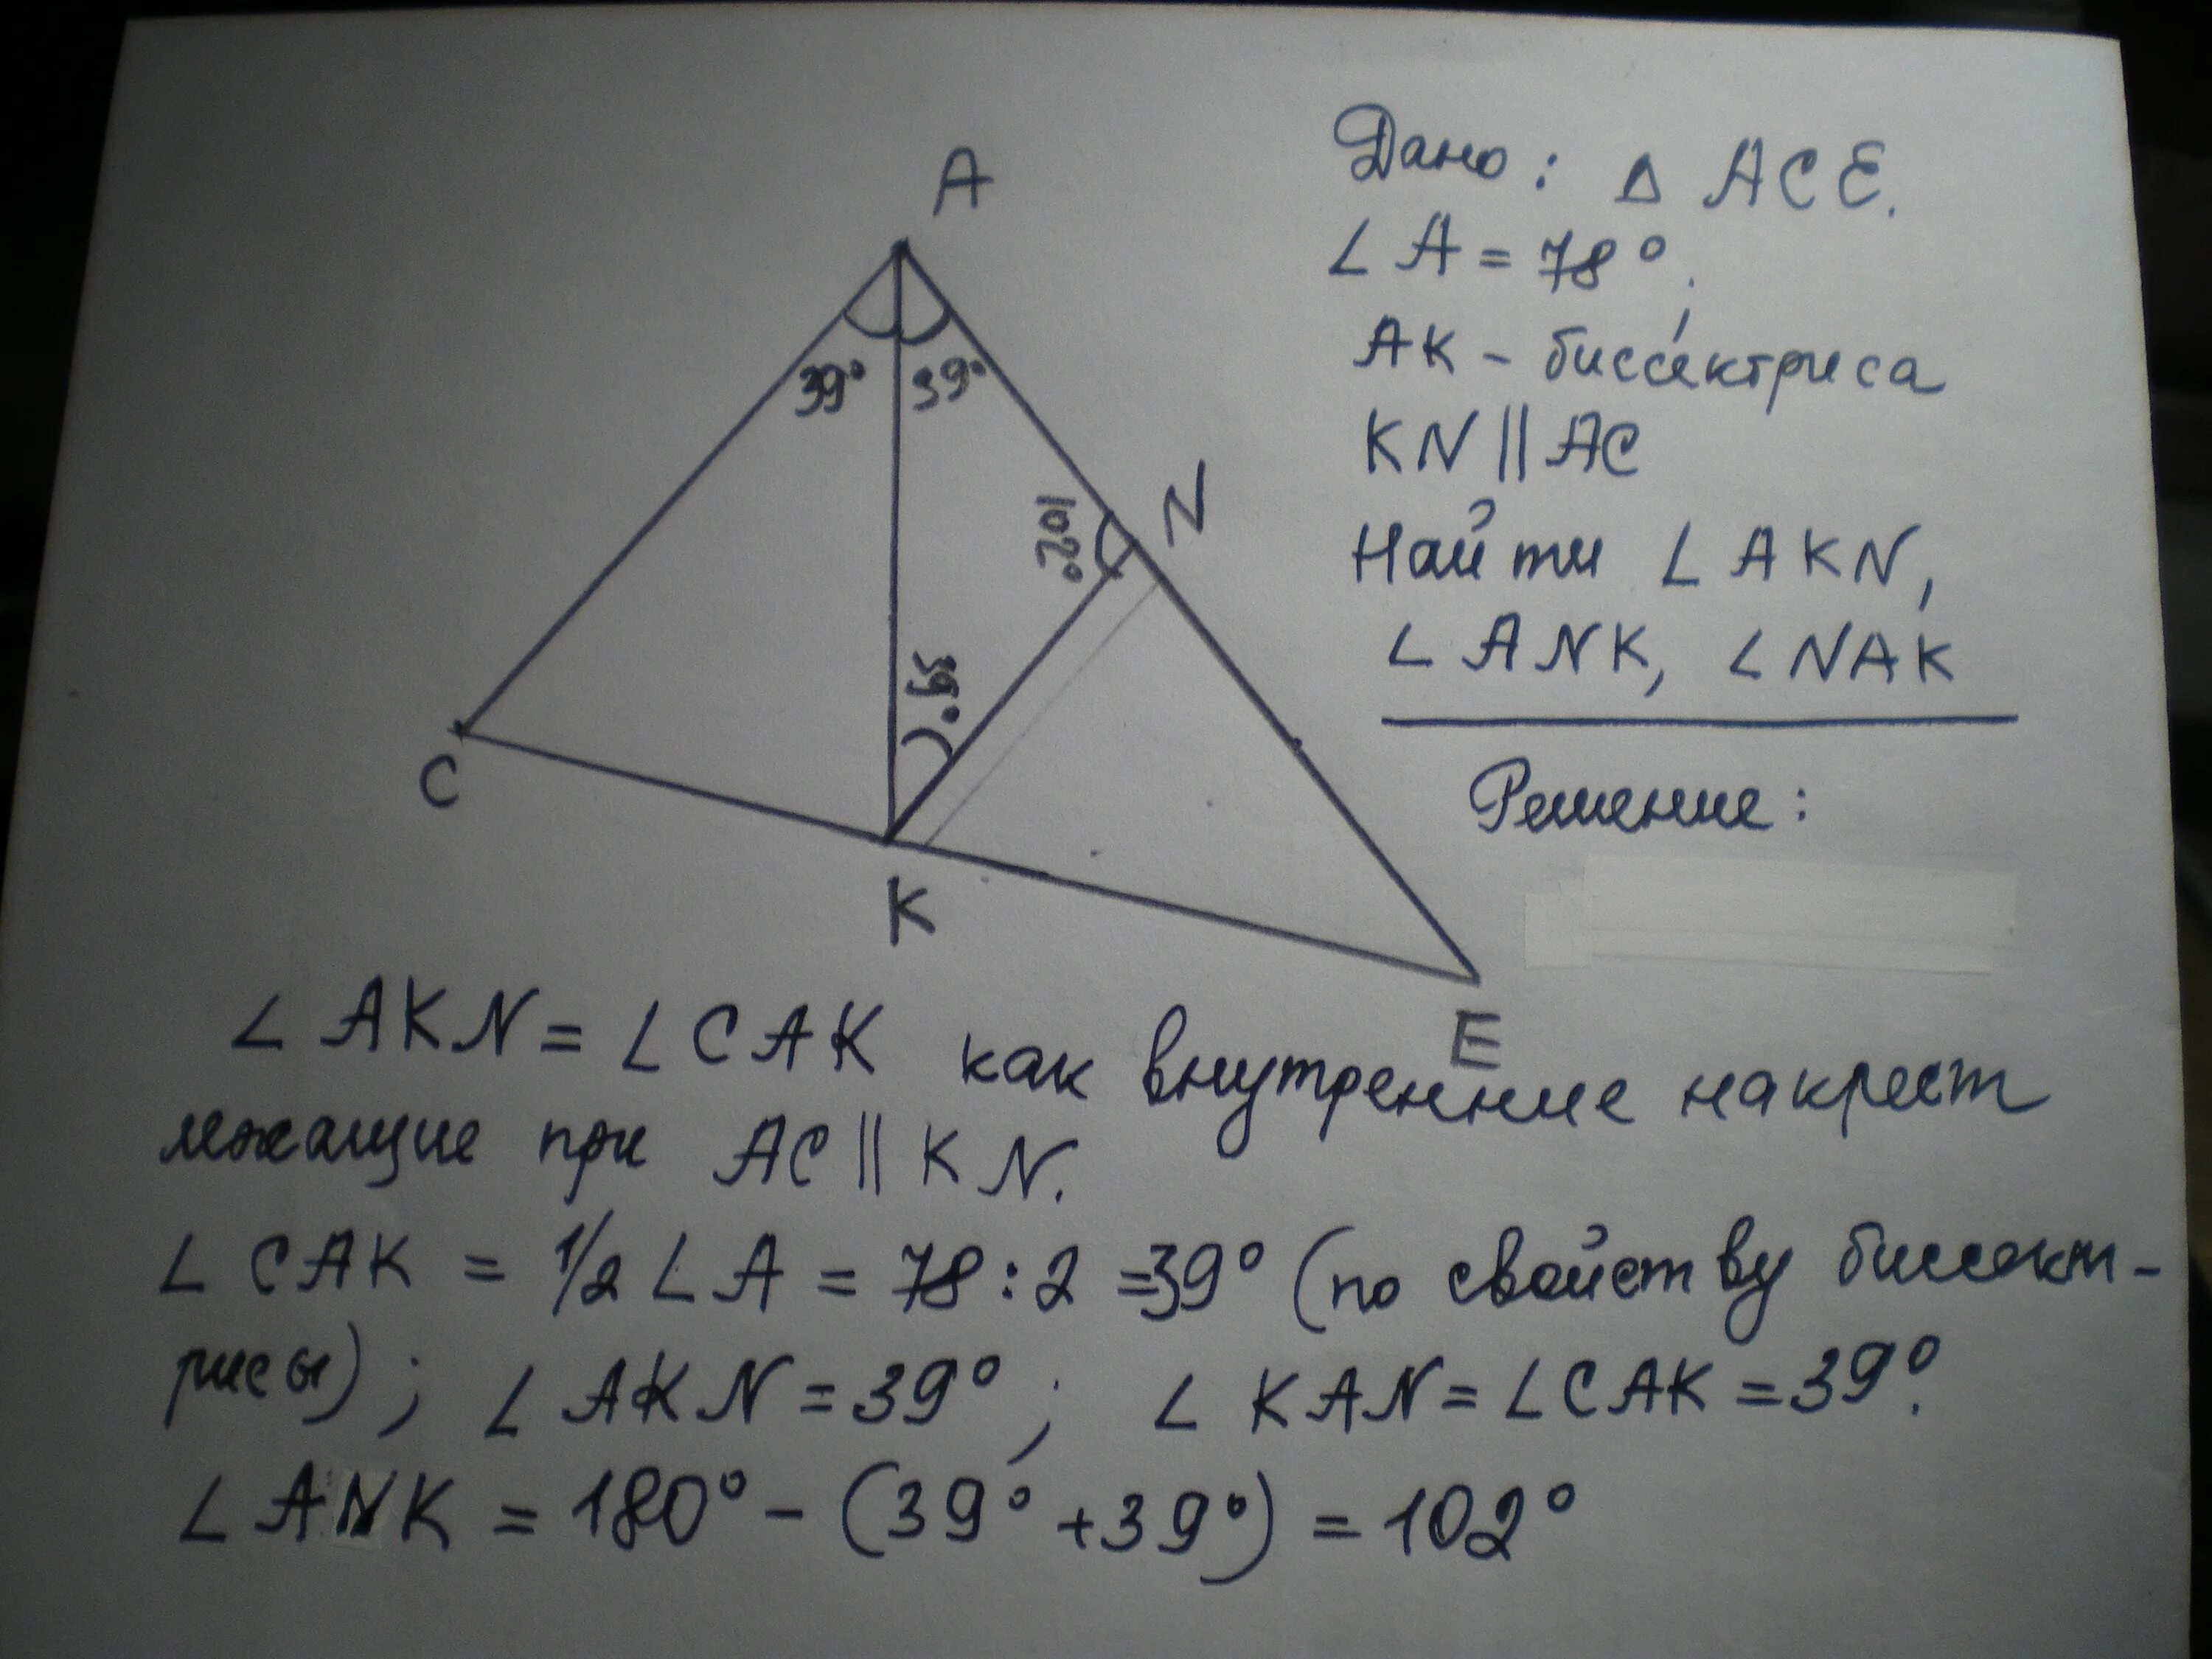 A
Дано: Δ ACE.
∠A = 78°;
AK - биссектриса
39° 39°
KN || AC
N
102°
Найти ∠AKN,
∠ANK, ∠NAK
39°
C
Решение:
K
E
∠AKN = ∠CAK как внутренние накрест
лежащие при AC || KN.
∠CAK = 1/2 ∠A = 78 : 2 = 39° (по свойству биссект-
рисы); ∠AKN = 39°; ∠KAN = ∠CAK = 39°.
∠ANK = 180° - (39° + 39°) = 102°